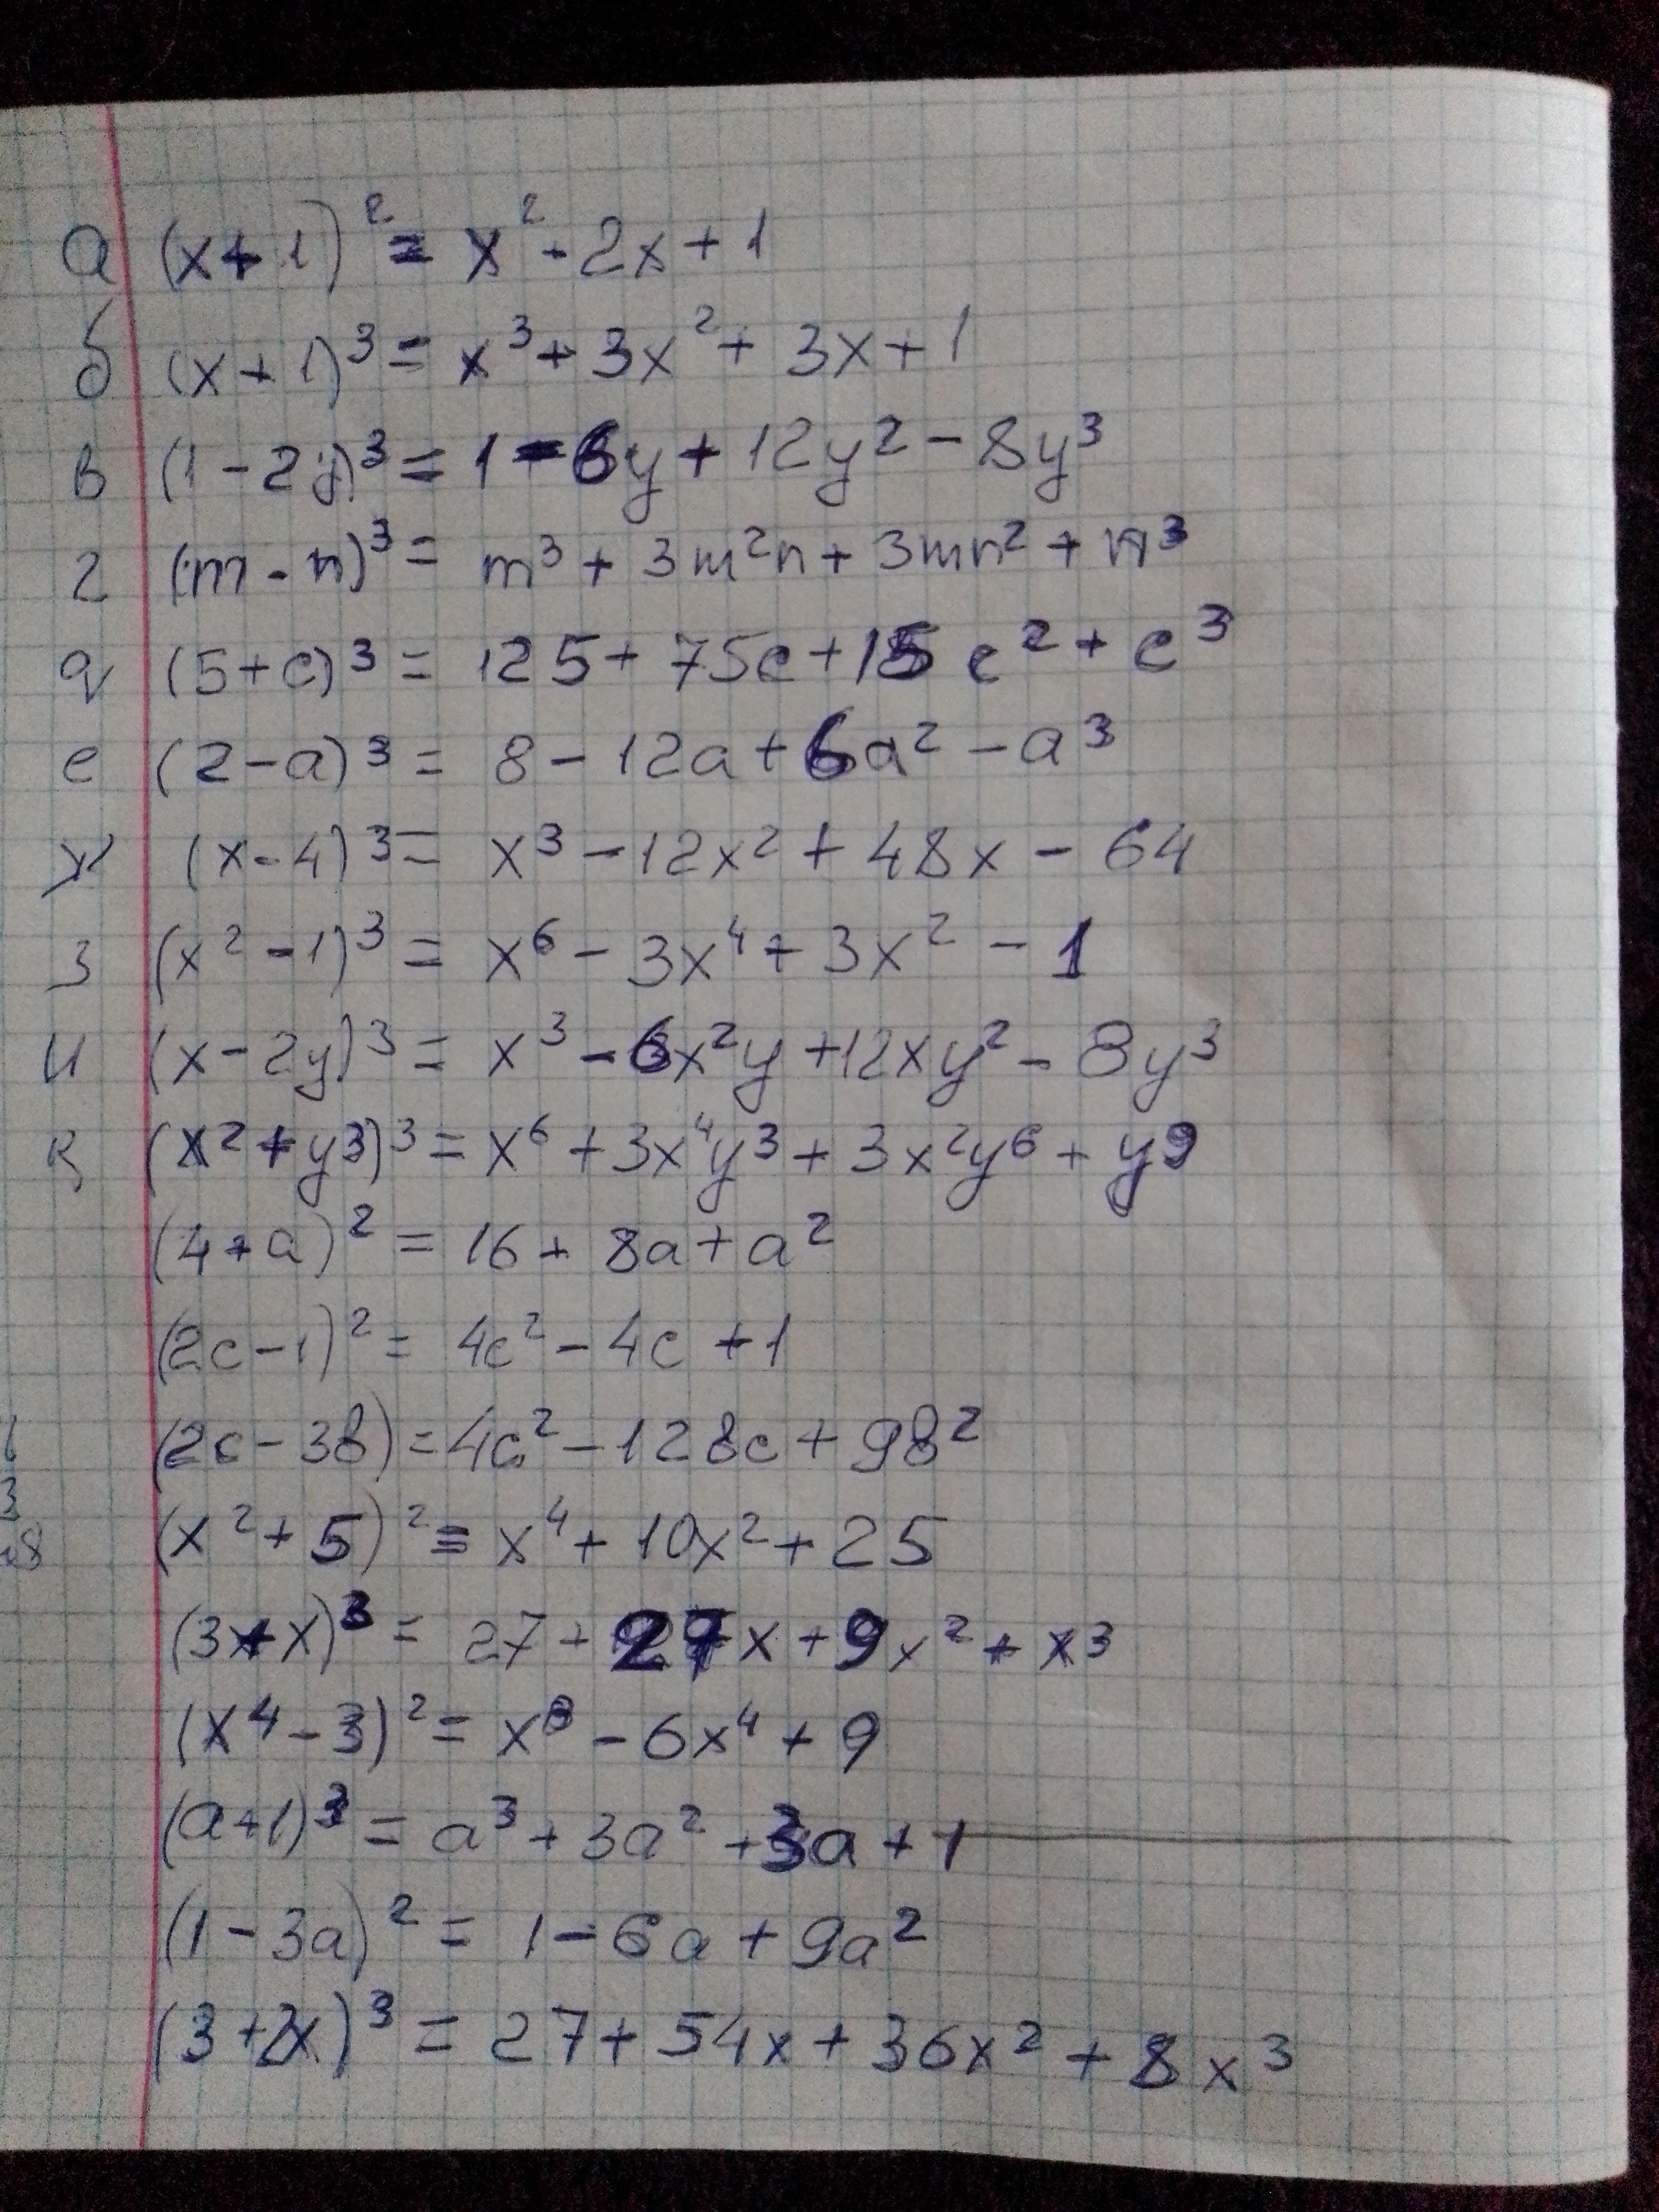 а (x+1)² = x² - 2x + 1
б (x+1)³ = x³ + 3x² + 3x + 1
в (1-2y)³ = 1 - 6y + 12y² - 8y³
г (m-n)³ = m³ + 3m²n + 3mn² + n³
д (5+c)³ = 125 + 75c + 15c² + c³
е (2-a)³ = 8 - 12a + 6a² - a³
ж (x-4)³ = x³ - 12x² + 48x - 64
з (x²-1)³ = x⁶ - 3x⁴ + 3x² - 1
и (x-2y)³ = x³ - 6x²y + 12xy² - 8y³
к (x²+y³)³ = x⁶ + 3x⁴y³ + 3x²y⁶ + y⁹
(4+a)² = 16 + 8a + a²
(2c-1)² = 4c² - 4c + 1
(2c-3в) = 4c² - 12вc + 9в²
(x²+5)² = x⁴ + 10x² + 25
(3+x)³ = 27 + 27x + 9x² + x³
(x⁴-3)² = x⁸ - 6x⁴ + 9
(a+1)³ = a³ + 3a² + 3a + 1
(1-3a)² = 1 - 6a + 9a²
(3+2x)³ = 27 + 54x + 36x² + 8x³